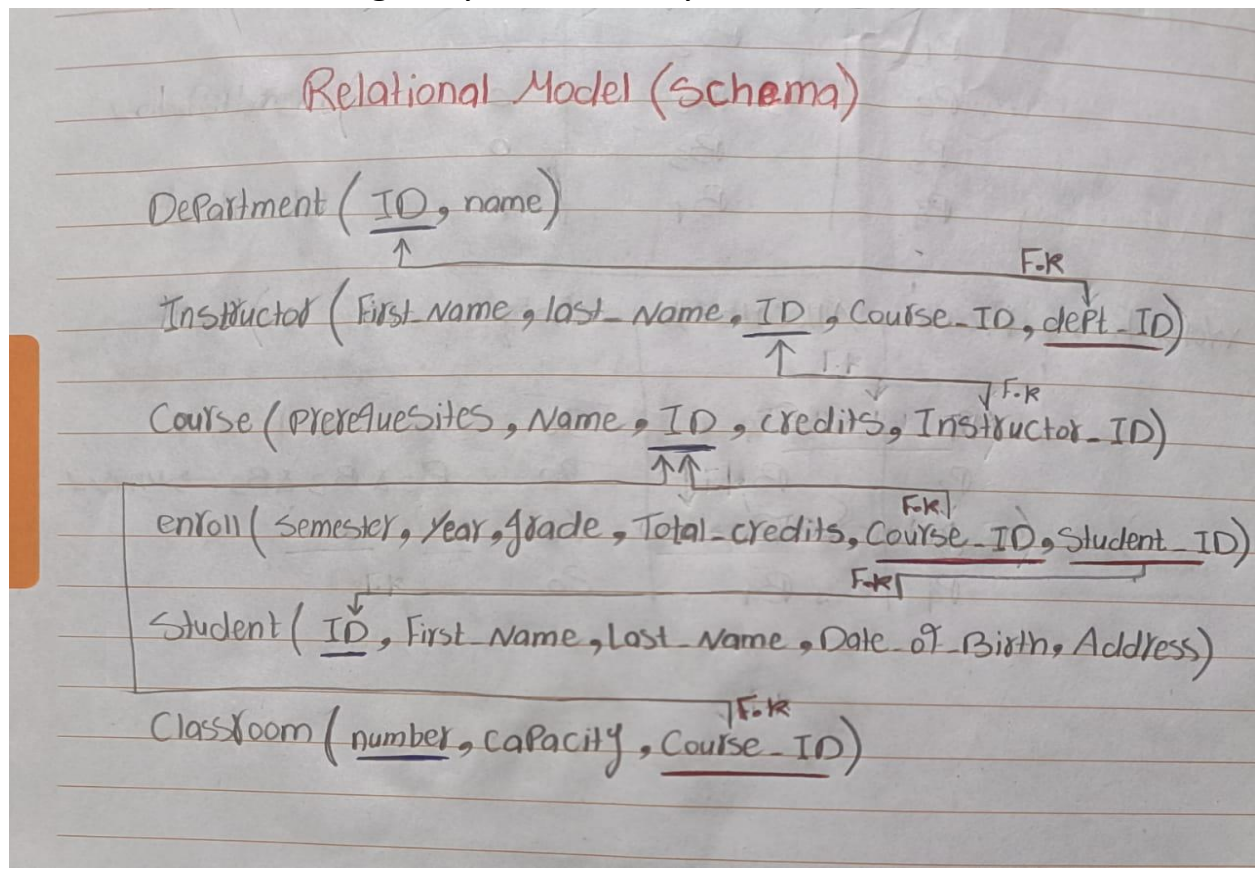 Relational Model (Schema)
Department ( ID, name)
F.K
Instructor ( First_Name, last_Name, ID, Course_ID, dept_ID)
F.K
Course ( prerequesites, Name, ID, credits, Instructor_ID)
F.K
enroll ( semester, year, grade, Total_credits, Course_ID, Student_ID)
F.K
Student ( ID, First_Name, Last_Name, Date_of_Birth, Address)
F.K
Classroom ( number, capacity, Course_ID)